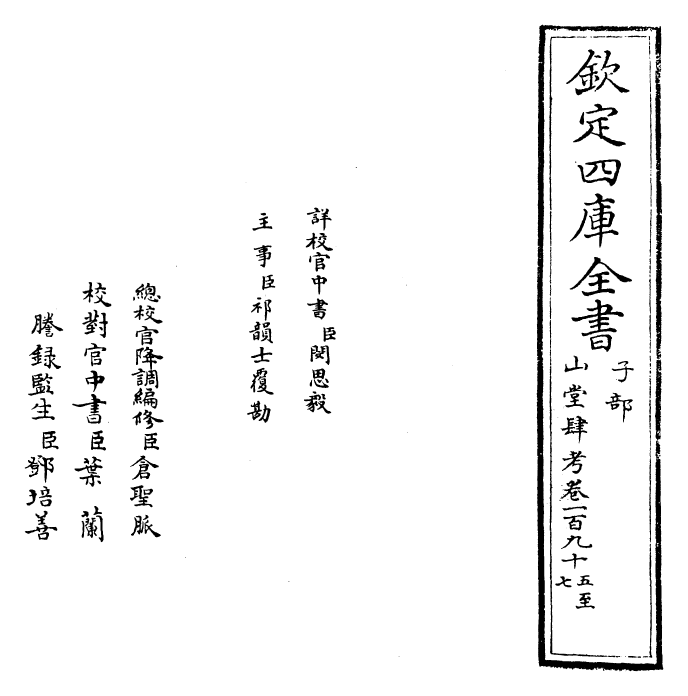 欽定四庫全書
子部
山堂肆考卷一百九十五至
七
詳校官中書臣閔思毅
主事臣祁韻士覆勘
總校官降調編修臣倉聖脈
校對官中書臣葉蘭
謄錄監生臣鄧培善